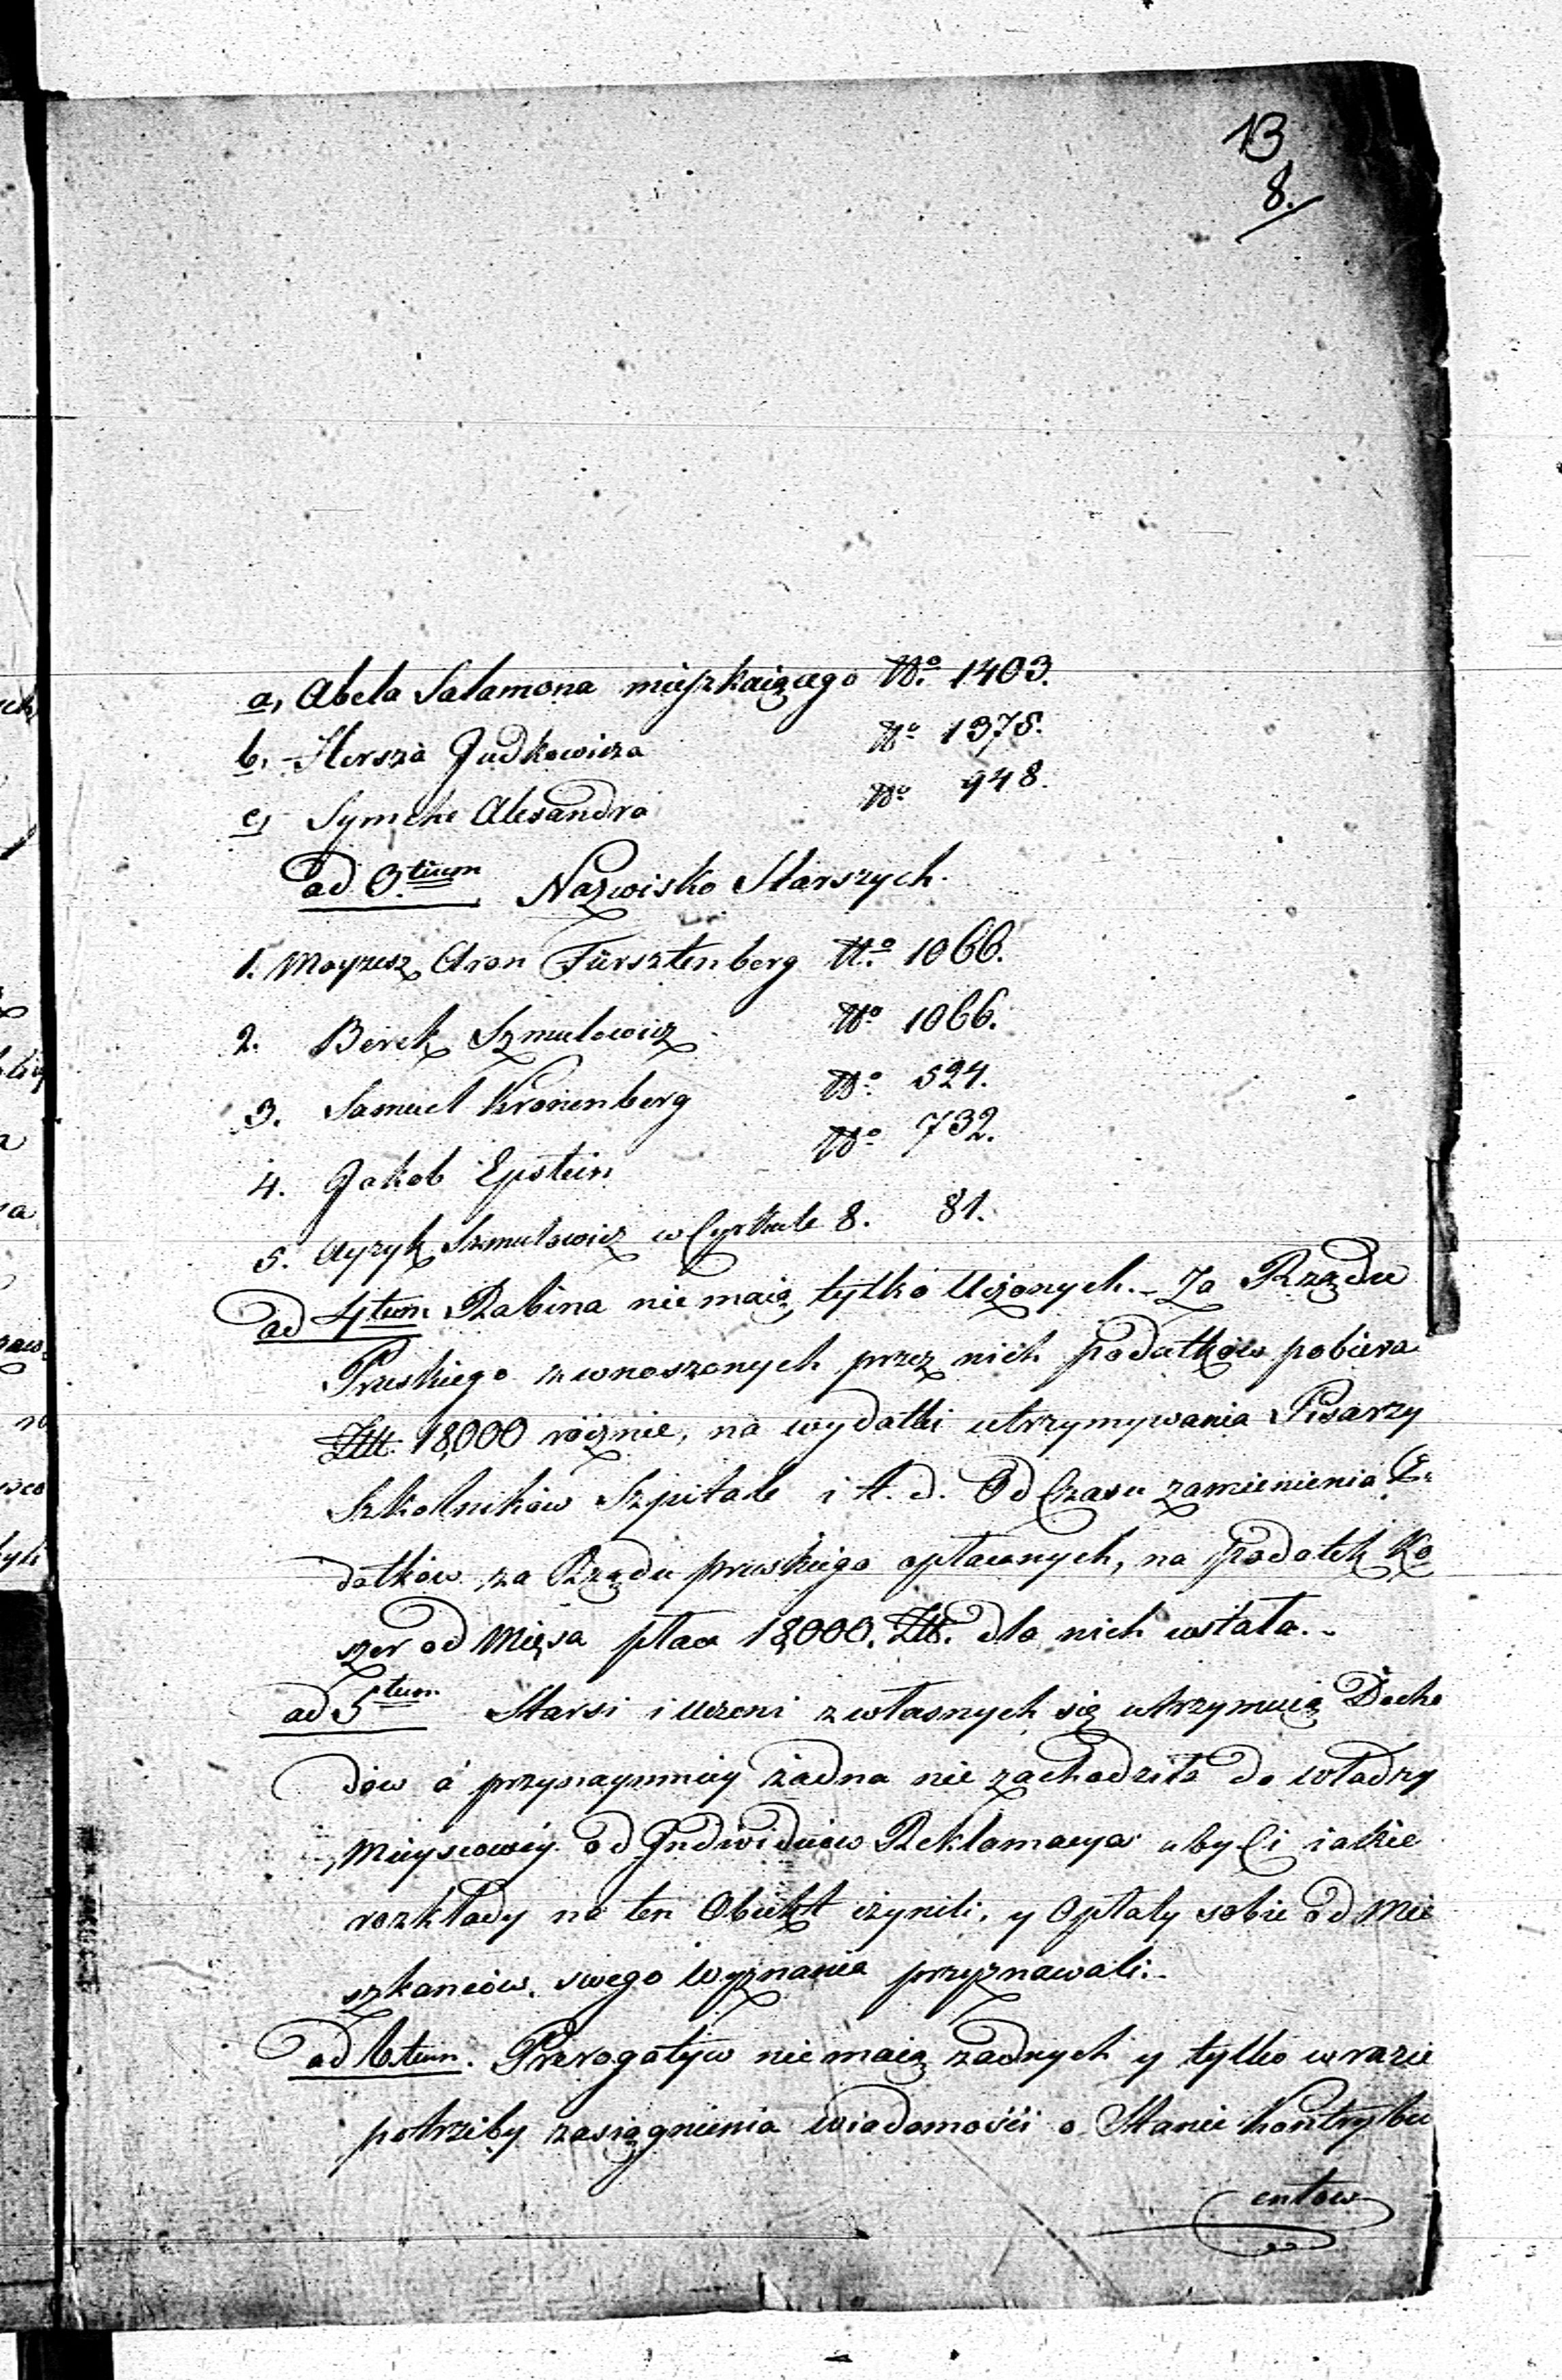 13
8.
a, Abela Salamona mieszkaiącego No. 1403.
b, Hersza Judkowicza No 1375.
c, Symche Alexandra No 948.
ad 3.tium Nazwisko Starszych.
1. Moyzesz Aron Fürsztenberg No. 1066.
2. Berek Szmulowicz No 1066.
3. Samuel Kronenberg No 524.
4. Jakob Epstein No 732.
5. Ayzyk Szmulowicz w Cyrkule 8. 81.
ad 4tum Rabina nie maią, tylko Uczonych. - Za Rządu
Pruskiego z wnoszonych przez nich podatków pobiera
18,000 rocznie, na wydatki utrzymywania Pisarzy
Szkolników Szpitale i t. d. Od Czasu zamienienia
datków za Rządu pruskiego opłacanych, na podatek Ko
szer od Mięsa płaca 18,000. dla nich ustała. -
ad 5tum Starsi i Uczeni z własnych się utrzymuią Docho
dów a przynaymniey żadna nie zachodziła do władzy
Mieyscowéy od Indwiduów Reklamacya aby Ci iakie
rozkłady na ten Obiekt czynili, y Opłaty sobie od Mie
szkanców, swego Wyznania przyznawali. -
ad 6tum. Prerogatyw nie maią żadnych y tylko w razie
potrzeby zasiągnienia wiadomości o Stanie kontrybu
entow